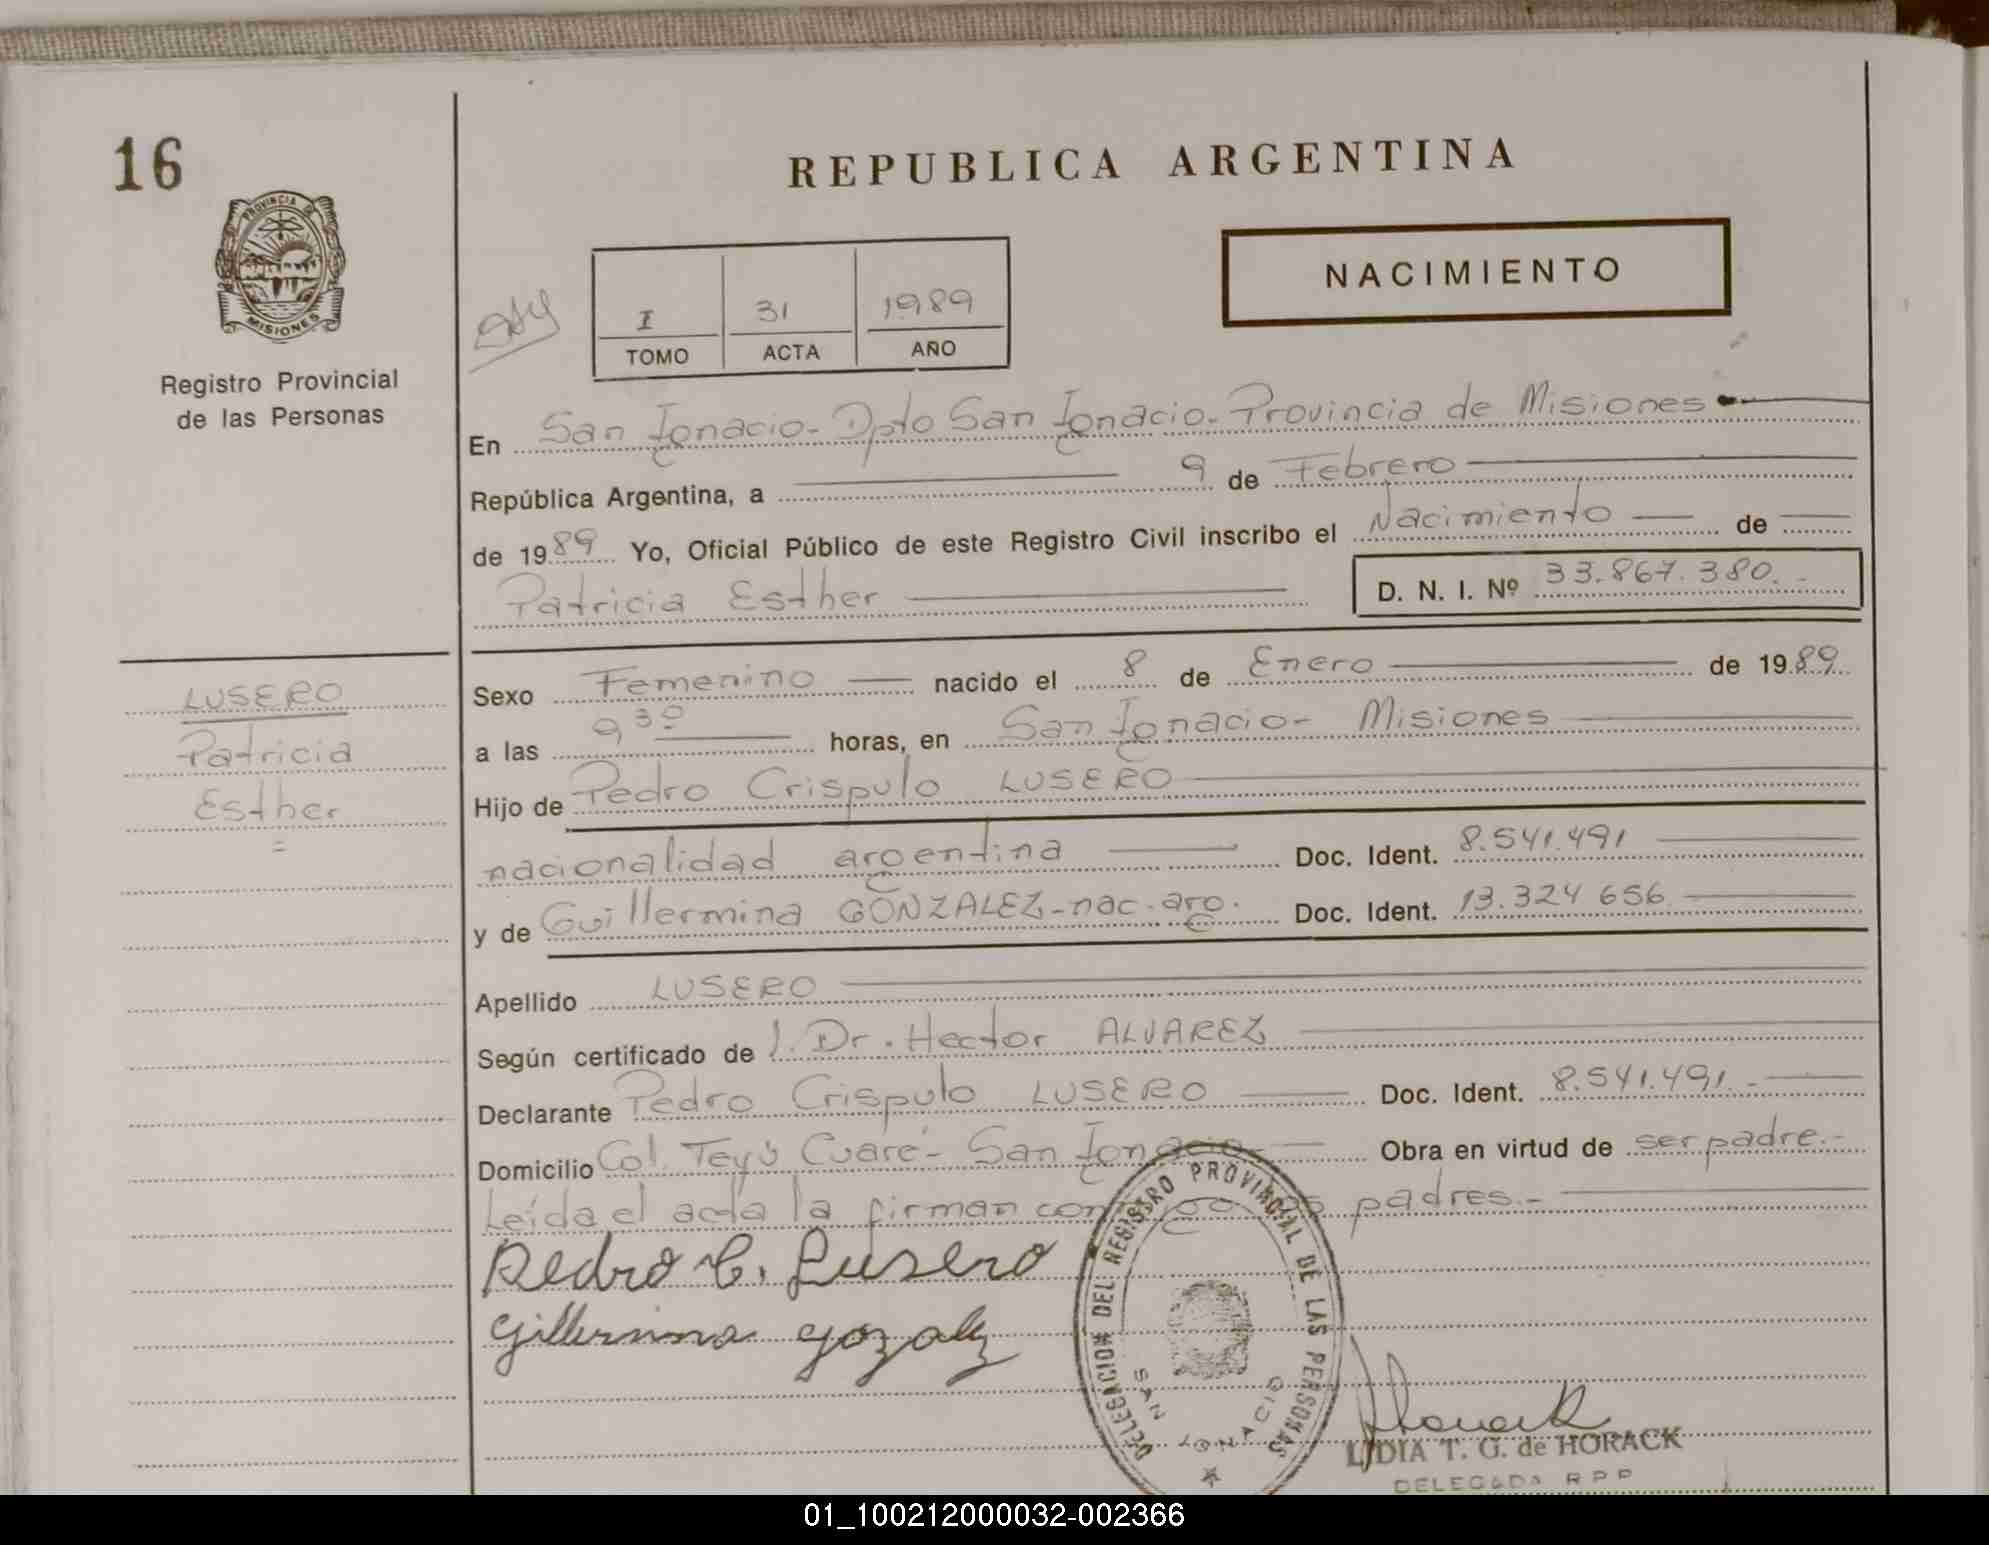 16
REPUBLICA ARGENTINA
PROVINCIA DE
MISIONES
Registro Provincial
de las Personas
NACIMIENTO
I 31 1989
TOMO ACTA AÑO
En San Ignacio - Dpto San Ignacio - Provincia de Misiones
República Argentina, a 9 de Febrero
de 1989 Yo, Oficial Público de este Registro Civil inscribo el Nacimiento de
Patricia Esther D. N. I. Nº 33.867.380.-
LUSERO
Patricia
Esther
Sexo Femenino nacido el 8 de Enero de 1989
a las 9 30 horas, en San Ignacio - Misiones
Hijo de Pedro Crispulo LUSERO
nacionalidad argentina Doc. Ident. 8.541.491
y de Guillermina GONZALEZ - nac. arg. Doc. Ident. 13.324 656
Apellido LUSERO
Según certificado de 1. Dr. Hector ALVAREZ
Declarante Pedro Crispulo LUSERO Doc. Ident. 8.541.491.-
Domicilio Col. Teyú Cuaré - San Ignacio Obra en virtud de ser padre.-
Leída el acta la firman conmigo los padres.-
Pedro C. Lusero
Gillermina gozalz
DELEGACION DEL REGISTRO PROVINCIAL DE LAS PERSONAS
SAN IGNACIO
Horack
LIDIA T. G. de HORACK
DELEGADA R P P
01_100212000032-002366